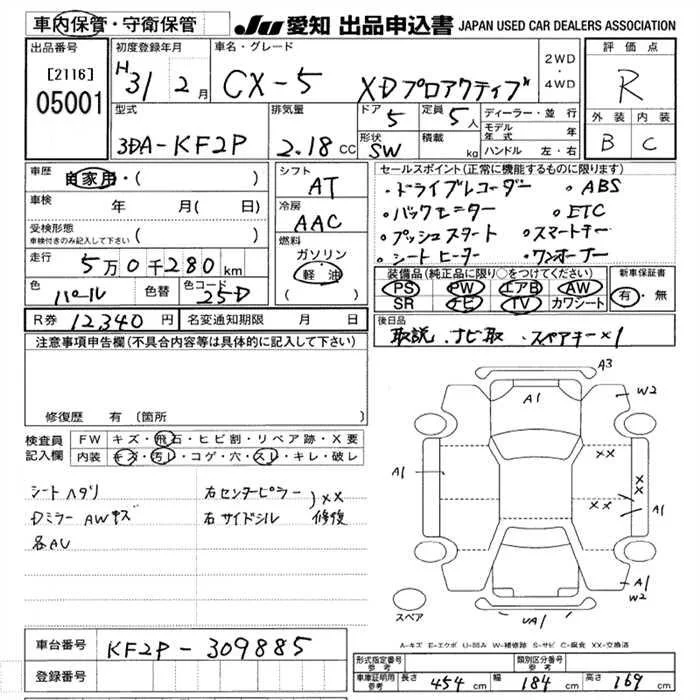 車内保管・守衛保管
JU 愛知 出品申込書 JAPAN USED CAR DEALERS ASSOCIATION
出品番号
[2116]
05001
初度登録年月
H31 2月
車名・グレード
CX-5 XDプロアクティブ
2WD
4WD
評価点
R
型式
3DA-KF2P
排気量
2.18 CC
ドア
5
定員
5人
形状
SW
積載
kg
ディーラー・並行
モデル年式 年
ハンドル 左・右
外装 内装
B C
車歴
自家用・( )
車検 年 月(日)
受検形態
車検付きのみ記入して下さい ( )
走行 5万0千280km
色 パール 色替 色コード 25D
シフト
AT
冷房
AAC
燃料
ガソリン
軽油
( )
セールスポイント(正常に機能するものに限ります)
・ドライブレコーダー ・ABS
・バックモニター ・ETC
・プッシュスタート ・スマートキー
・シートヒーター ・ワンオーナー
装備品(純正品に限り○をつけてください)
PS PW エアB AW
SR ナビ TV カワシート
新車保証書
有・無
R券 12,340円 名変通知期限 月 日
後日品
取説 ナビ取 スペアキー×1
注意事項申告欄(不具合内容等は具体的に記入して下さい)
修復歴 有 (箇所 )
検査員記入欄
FW キズ・飛石・ヒビ割・リペア跡・X要
内装 キズ・汚レ・コゲ・穴・スレ・キレ・破レ
シートヘタリ 右センターピラー
Dミラー AWキズ 右サイドシル )XX 修復
各AU
A3
A1
W2
A1
XX
XX
XX
A1
A1
W2
UA1
スペア
A-キズ E-エクボ U-凹み W-補修跡 S-サビ C-腐食 XX-交換済
車台番号 KF2P-309885
登録番号
形式指定番号 参考
類別区分番号 参考
車庫証明用 参考
長さ 454 cm 幅 184 cm 高さ 169 cm